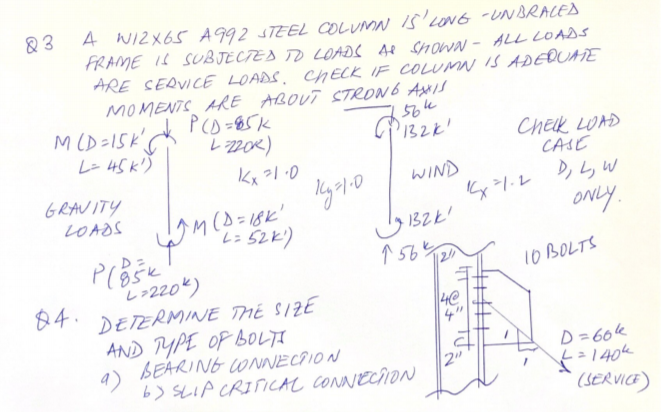 Q3 A W12X65 A992 STEEL COLUMN 15' LONG - UNBRACED
FRAME IS SUBJECTED TO LOADS AS SHOWN - ALL LOADS
ARE SERVICE LOADS. CHECK IF COLUMN IS ADEQUATE
MOMENTS ARE ABOUT STRONG AXIS
M (D=15k'
L=45k')
P (D=85k
L=220k)
Kx=1.0
Ky=1.0
GRAVITY
LOADS
M (D=18k'
L=52k')
P (D=
85k
L=220k)
56k
132k'
WIND
Kx=1.2
132k'
56k
CHECK LOAD
CASE
D, L, W
ONLY.
Q4. DETERMINE THE SIZE
AND TYPE OF BOLTS
a) BEARING CONNECTION
b) SLIP CRITICAL CONNECTION
10 BOLTS
2"
4@
4"
2"
1
1
D=60k
L=140k
(SERVICE)